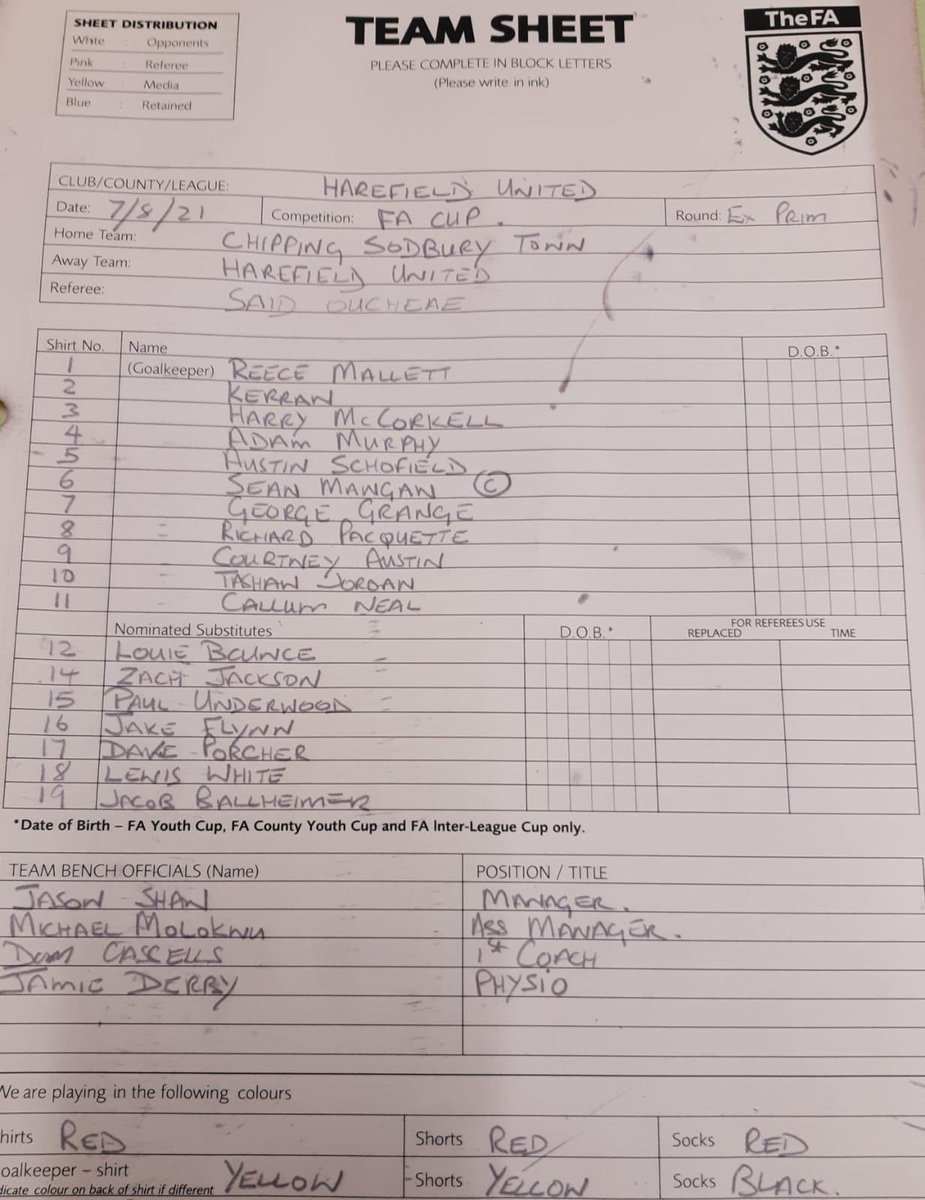 SHEET DISTRIBUTION
White : Opponents
Pink : Referee
Yellow : Media
Blue : Retained
TEAM SHEET
PLEASE COMPLETE IN BLOCK LETTERS
(Please write in ink)
The FA
CLUB/COUNTY/LEAGUE: HAREFIELD UNITED
Date: 7/8/21 Competition: FA CUP. Round: EX PRIM
Home Team: CHIPPING SODBURY TOWN
Away Team: HAREFIELD UNITED
Referee: SAID OUCHEAE
Shirt No. Name D.O.B.*
1 (Goalkeeper) REECE MALLETT
2 KERRAN
3 HARRY MCCORKELL
4 ADAM MURPHY
5 AUSTIN SCHOFIELD
6 SEAN MANGAN (C)
7 GEORGE GRANGE
8 RICHARD PACQUETTE
9 COURTNEY AUSTIN
10 TASHAN JORDAN
11 CALLUM NEAL
Nominated Substitutes D.O.B.* FOR REFEREES USE
REPLACED TIME
12 LOUIE BOUNCE
14 ZACH JACKSON
15 PAUL UNDERWOOD
16 JAKE FLYNN
17 DAVE PORCHER
18 LEWIS WHITE
19 JACOB BALLHEIMER
*Date of Birth – FA Youth Cup, FA County Youth Cup and FA Inter-League Cup only.
TEAM BENCH OFFICIALS (Name) POSITION / TITLE
JASON SHAW MANAGER.
MICHAEL MOLOKWU ASS MANAGER.
DOM CASCELLS 1st COACH
JAMIE DERBY PHYSIO
We are playing in the following colours
hirts RED Shorts RED Socks RED
oalkeeper – shirt YELLOW Shorts YELLOW Socks BLACK.
dicate colour on back of shirt if different